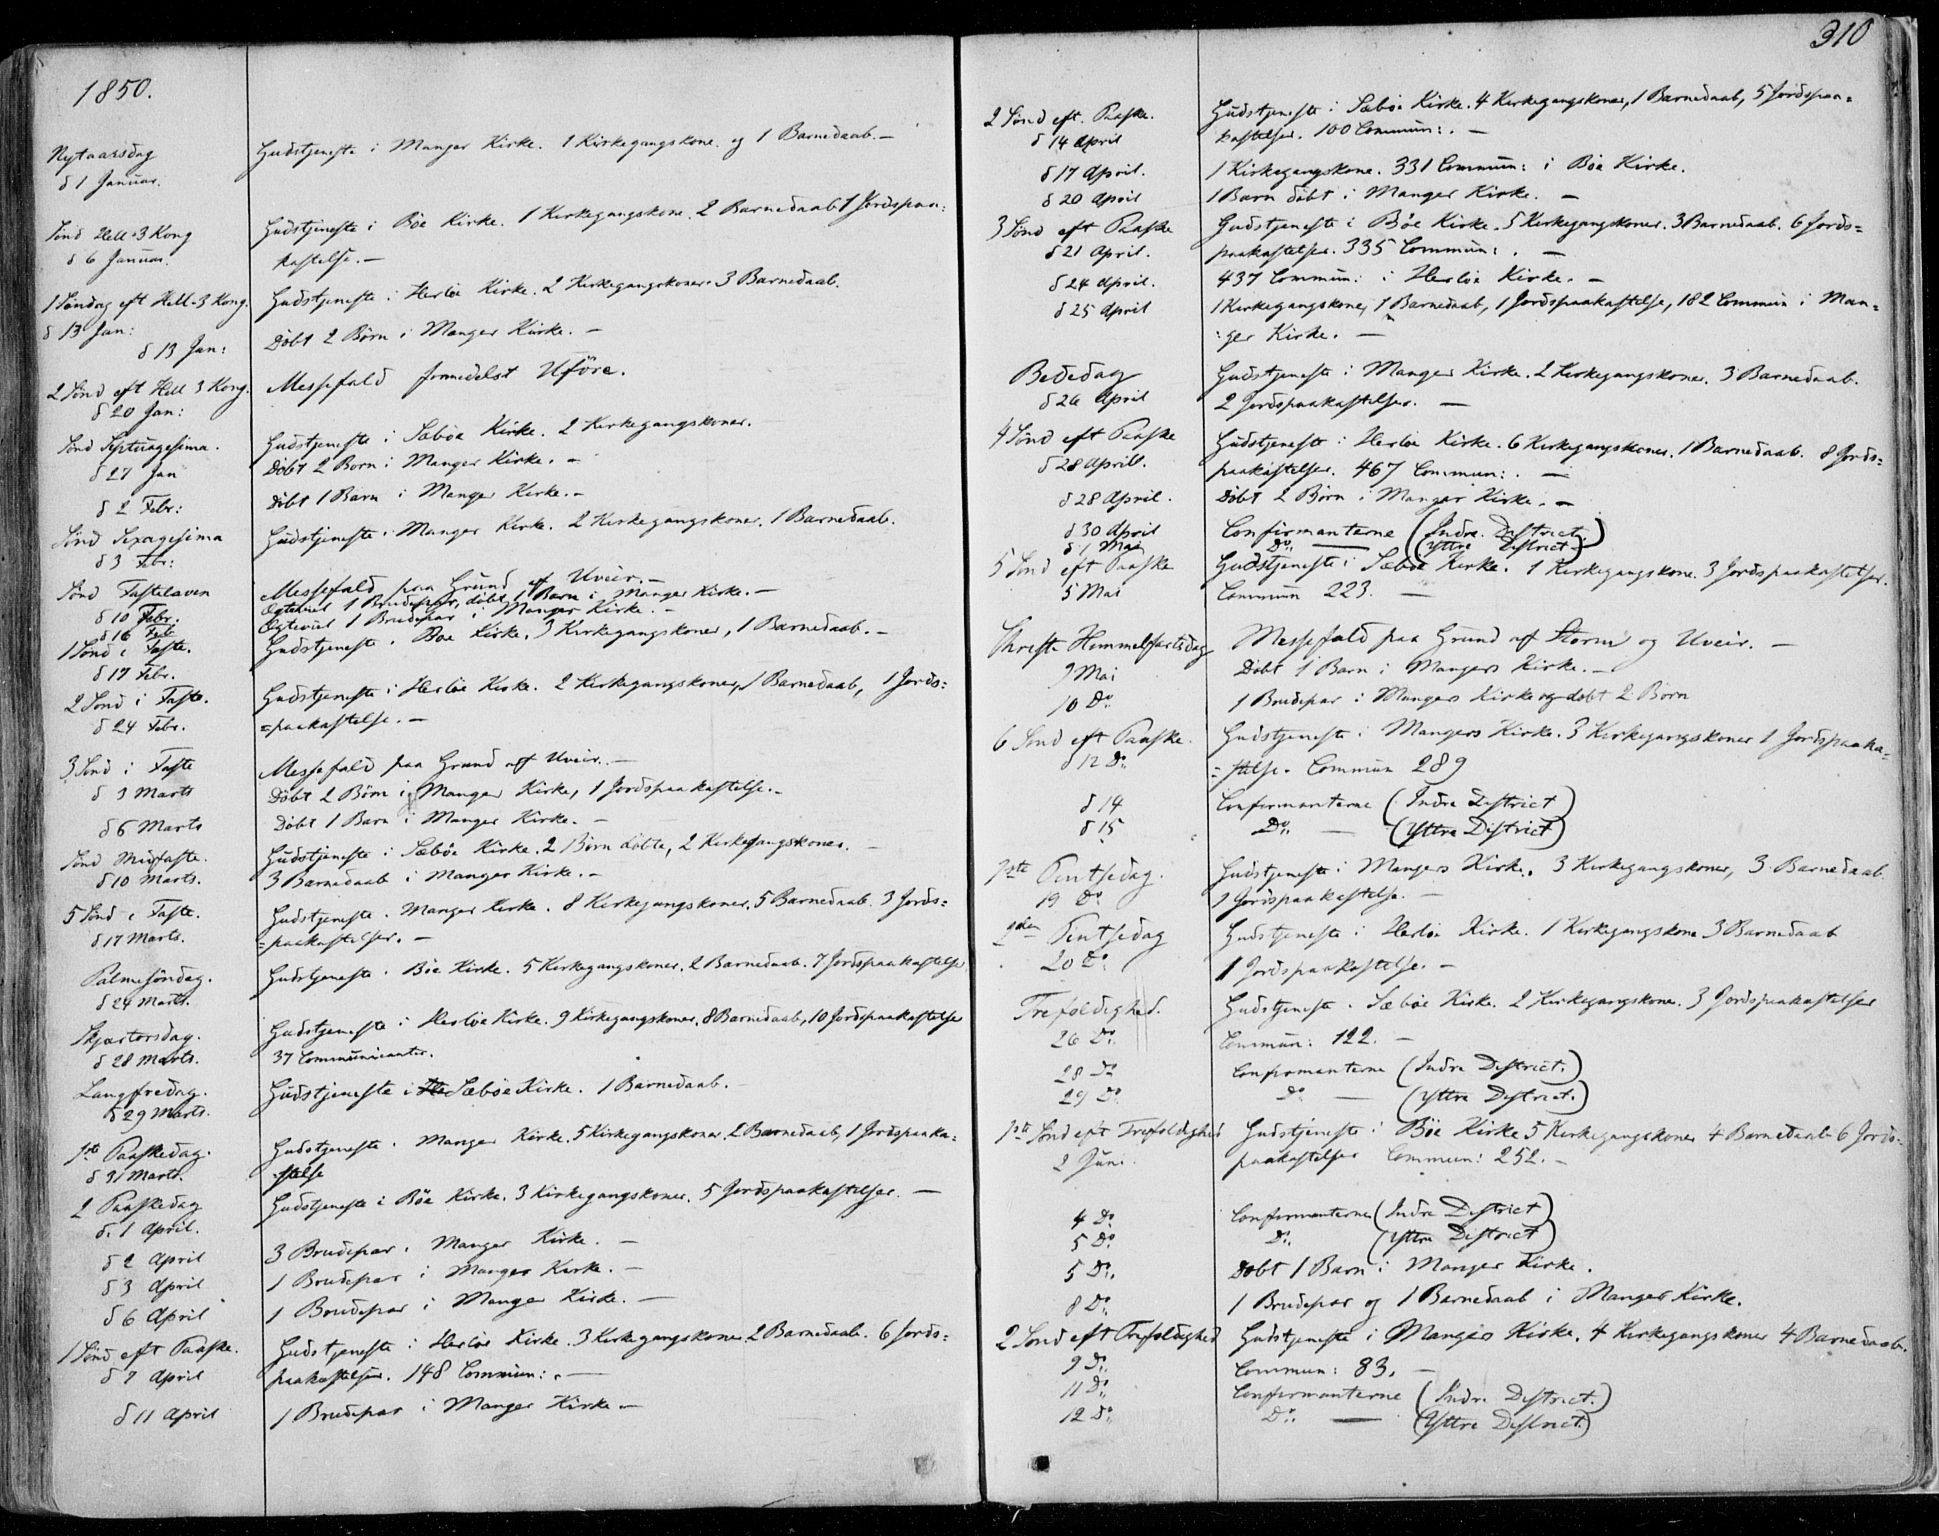 1850.
Nytaarsdag Gudstjeneste i Manger Kirke. 1 Kirkegangskone og 1 Barnedaab. —
δ 1 Januar.
Sønd Hell. 3 Kong Gudstjeneste i Bøe Kirke. 1 Kirkegangskone. 2 Barnedaab 1 Jordspaa-
δ 6 Januar. kastelse. —
1 Søndag eft Hell. 3 Kong. Gudstjeneste i Herløe Kirke. 2 Kirkegangskoner. 3 Barnedaab.
δ 13 Jan:
δ 13 Jan: Døbt 2 Børn i Manger Kirke. —
2 Sønd eft Hell 3 Kong. Messefald formedelst Uføre.
δ 20 Jan:
Sønd Septuagesima. Gudstjeneste i Sæbøe Kirke. 2 Kirkegangskoner.
δ 27 Jan Døbt 2 Børn i Manger Kirke. —
δ 2 Febr: Døbt 1 Barn i Manger Kirke. —
Sønd Sexagesima Gudstjeneste i Manger Kirke. 2 Kirkegangskoner. 1 Barnedaab.
δ 3 Febr:
Sønd Fastelaven Messefald paa Grund af Uveir. —
δ 10 Febr. Ægteviet 1 Brudepar, døbt 1 Barn i Manger Kirke. —
δ 16 Feb Ægteviet 1 Brudepar i Manger Kirke. —
1 Sønd i Faste. Gudstjeneste i Bøe Kirke. 3 Kirkegangskoner, 1 Barnedaab. —
δ 17 Febr.
2 Sønd i Faste. Gudstjeneste i Herløe Kirke. 2 Kirkegangskoner, 1 Barnedaab, 1 Jords=
δ 24 Febr. =paakastelse. —
3 Sønd i Faste Messefald paa Grund af Uveir. —
δ 3 Marts Døbt 2 Børn i Manger Kirke, 1 Jordspaakastelse. —
δ 6 Marts Døbt 1 Barn i Manger Kirke. —
Sønd Midfaste. Gudstjeneste i Sæbøe Kirke. 2 Børn døbte, 2 Kirkegangskoner. —
δ 10 Marts. 3 Barnedaab i Manger Kirke. —
5 Sønd i Faste. Gudstjeneste i Manger Kirke. 8 Kirkegangskoner. 5 Barnedaab. 3 Jords=
δ 17 Marts. =paakastelser. —
Palmesøndag. Gudstjeneste i Bøe Kirke. 5 Kirkegangskoner. 2 Barnedaab. 7 Jordspaakastelser
δ 24 Marts.
Skjærtorsdag. Gudstjeneste i Herløe Kirke. 9 Kirkegangskoner. 8 Barnedaab, 10 Jordspaakastelser
δ 28 Marts. 37 Communicanter.
Langfredag. Gudstjeneste i Sæbøe Kirke. 1 Barnedaab. —
δ 29 Marts.
1ste Paaskedag. Gudstjeneste i Manger Kirke. 5 Kirkegangskoner 2 Barnedaab, 1 Jordspaaka-
δ 31 Marts. stelse
2 Paaskedag Gudstjeneste i Bøe Kirke. 3 Kirkegangskoner. 5 Jordspaakastelser. —
δ. 1 April.
δ 2 April 3 Brudepar i Manger Kirke. —
δ 3 April 1 Brudepar i Manger Kirke. —
δ 6 April 1 Brudepar i Manger Kirke. —
1 Sønd eft Paaske. Gudstjeneste i Herløe Kirke. 3 Kirkegangskoner 2 Barnedaab. 6 Jords=
δ 7 April paakastelser. 148 Commun: . —
δ 11 April 1 Brudepar i Manger Kirke —
310
2 Sønd eft. Paaske. Gudstjeneste i Sæbøe Kirke. 4 Kirkegangskoner, 1 Barnedaab, 5 Jordspaa=
δ 14 April kastelser. 100 Commun: . —
δ 17 April. 1 Kirkegangskone. 331 Commun: i Bøe Kirke.
δ 20 April 1 Barn døbt i Manger Kirke. —
3 Sønd eft Paaske Gudstjeneste i Bøe Kirke. 5 Kirkegangskoner. 3 Barnedaab. 6 Jords=
δ 21 April. paakastelser. 335 Commun: . —
δ 24 April. 437 Commun: i Herløe Kirke. —
δ 25 April 1 Kirkegangskone, 1 Barnedaab, 1 Jordspaakastelse, 182 Commun i Man-
ger Kirke. —
Bededag Gudstjeneste i Manger Kirke. 2 Kirkegangskoner. 3 Barnedaab.
δ 26 April 2 Jordspaakastelser. —
4 Sønd eft Paaske Gudstjeneste i Herløe Kirke. 6 Kirkegangskoner. 1 Barnedaab. 8 Jords=
δ 28 April. paakastelser. 467 Commun: . —
δ 28 April. Døbt 2 Børn i Manger Kirke. —
δ 30 April Confirmanterne (Indre District.)
δ 1 Mai Do. — (Yttre District)
5 Sønd eft Paaske Gudstjeneste i Sæbøe Kirke. 1 Kirkegangskone. 3 Jordspaakastelser.
5 Mai Commun 223. —
Christi Himmelfartsdag Messefald paa Grund af Storm og Uveir. —
9 Mai Døbt 1 Barn i Mangers Kirke. —
10 Do. 1 Brudepar i Mangers Kirke og døbt 2 Børn
6 Sønd eft Paaske. Gudstjeneste i Mangers Kirke. 3 Kirkegangskoner 1 Jordspaaka-
δ 12 Do. =stelse. Commun 289
δ 14 Confirmanterne (Indre District)
δ 15 Do. — (Yttre District)
1ste Pintsedag. Gudstjeneste i Mangers Kirke. 3 Kirkegangskoner, 3 Barnedaab
19 Do. 1 Jordspaakastelse. —
2den Pintsedag Gudstjeneste i Herløe Kirke. 1 Kirkegangskone 3 Barnedaab
20 Do. 1 Jordspaakastelse. —
Trefoldighed. Gudstjeneste i Sæbøe Kirke. 2 Kirkegangskone. 3 Jordspaakastelser
26 Do. Commun: 122. —
28 Do Confirmanterne (Indre District.)
29 Do. Do — (Yttre District.)
1ste Sønd eft Trefoldighed Gudstjeneste i Bøe Kirke 5 Kirkegangskoner 4 Barnedaab 6 Jords-
2 Juni. paakastelser Commun: 252. —
4 Do Confirmanterne (Indre District)
5 Do Do. (Yttre District)
5 Do. Døbt 1 Barn i Manger Kirke.
8 Do. 1 Brudepar og 1 Barnedaab i Manger Kirke.
2 Sønd eft Trefoldighed Gudstjeneste i Mangers Kirke. 4 Kirkegangskoner 4 Barnedaab.
9 Do. Commun: 83. —
11 Do. Confirmanterne (Indre District.)
12 Do. Do. — (Yttre District.)